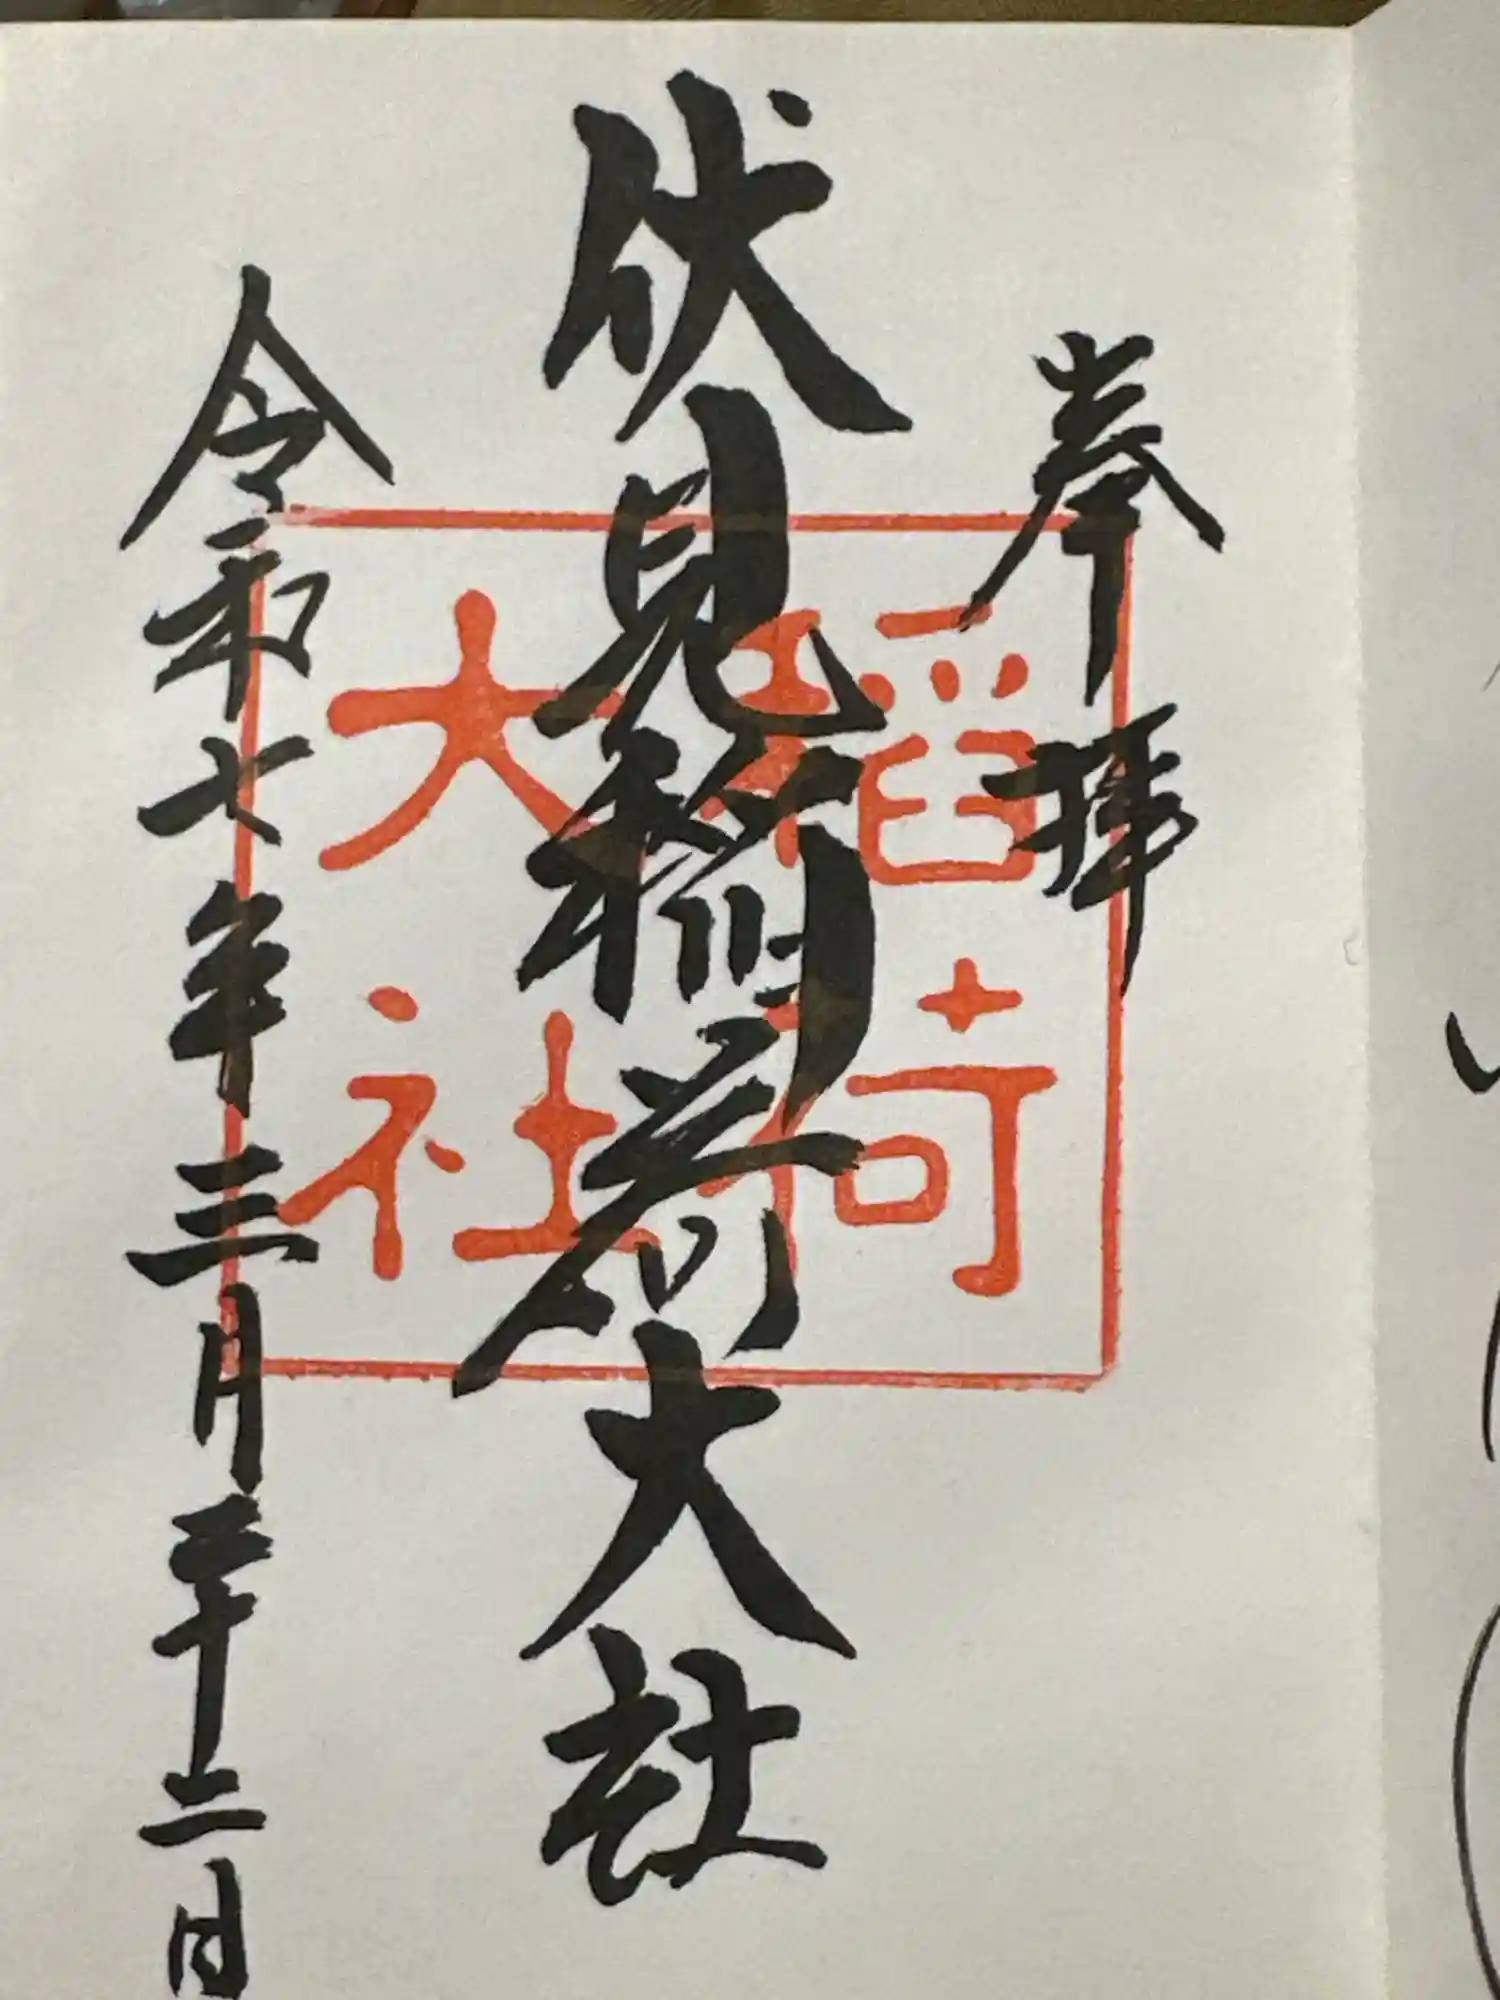 奉拝
伏見稲荷大社
稲荷
大社
令和七年三月二十二日